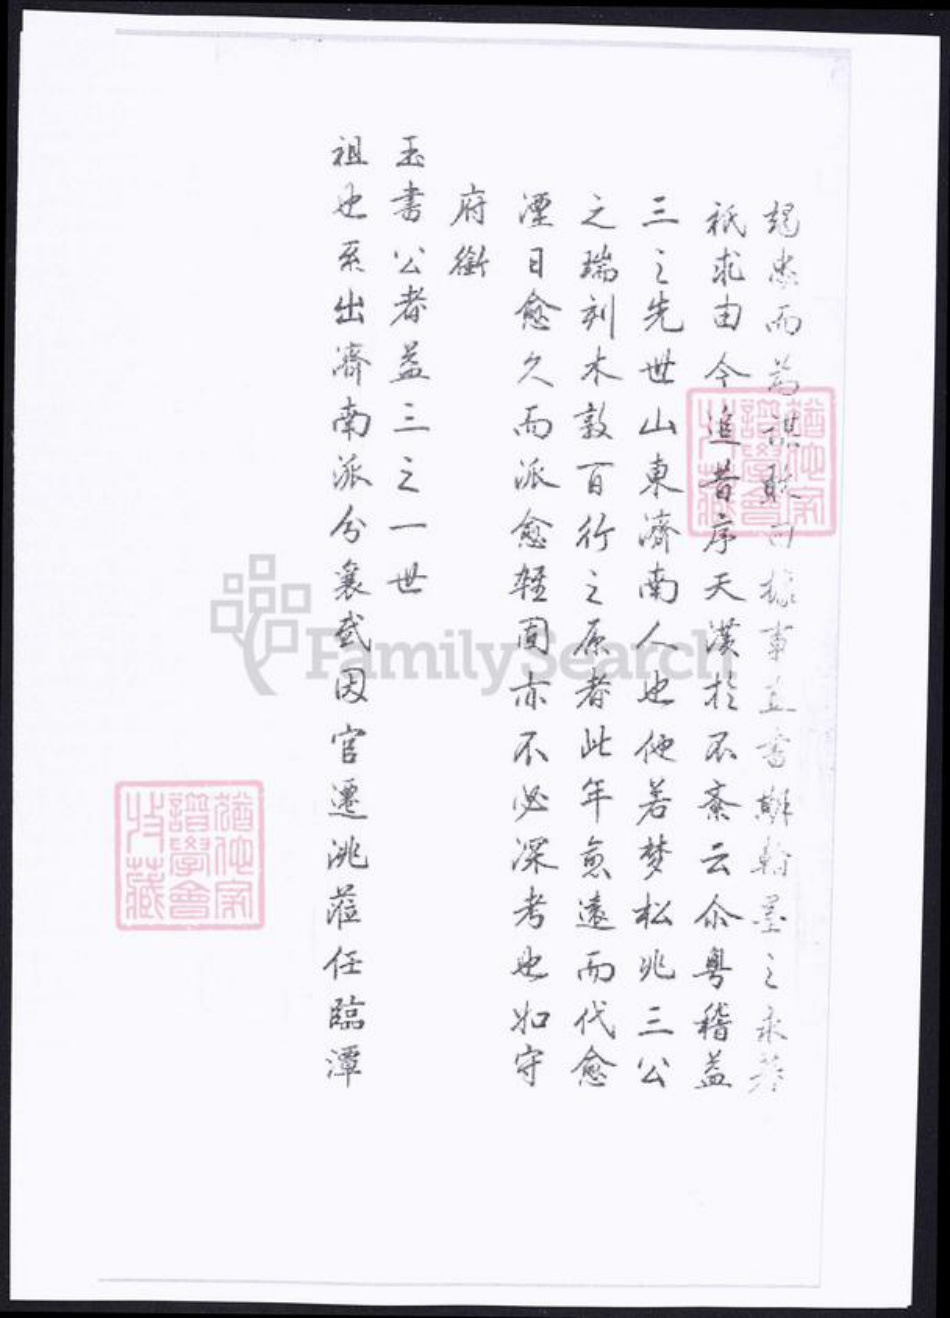 竭忠而為謀敢曰據事直書辭翰墨之永
祇求由今追昔序天漢於不紊云尒粤稽益
三之先世山東濟南人也他若梦松兆三公
之瑞刻木敦百行之原者此年愈遠而代愈
湮日愈久而派愈輕固亦不必深考也如守
府衛
玉書公者益三之一世
祖也系出濟南派分襄武因官遷洮蒞任臨潭
猶他家譜學會收藏
猶他家譜學會收藏
FamilySearch